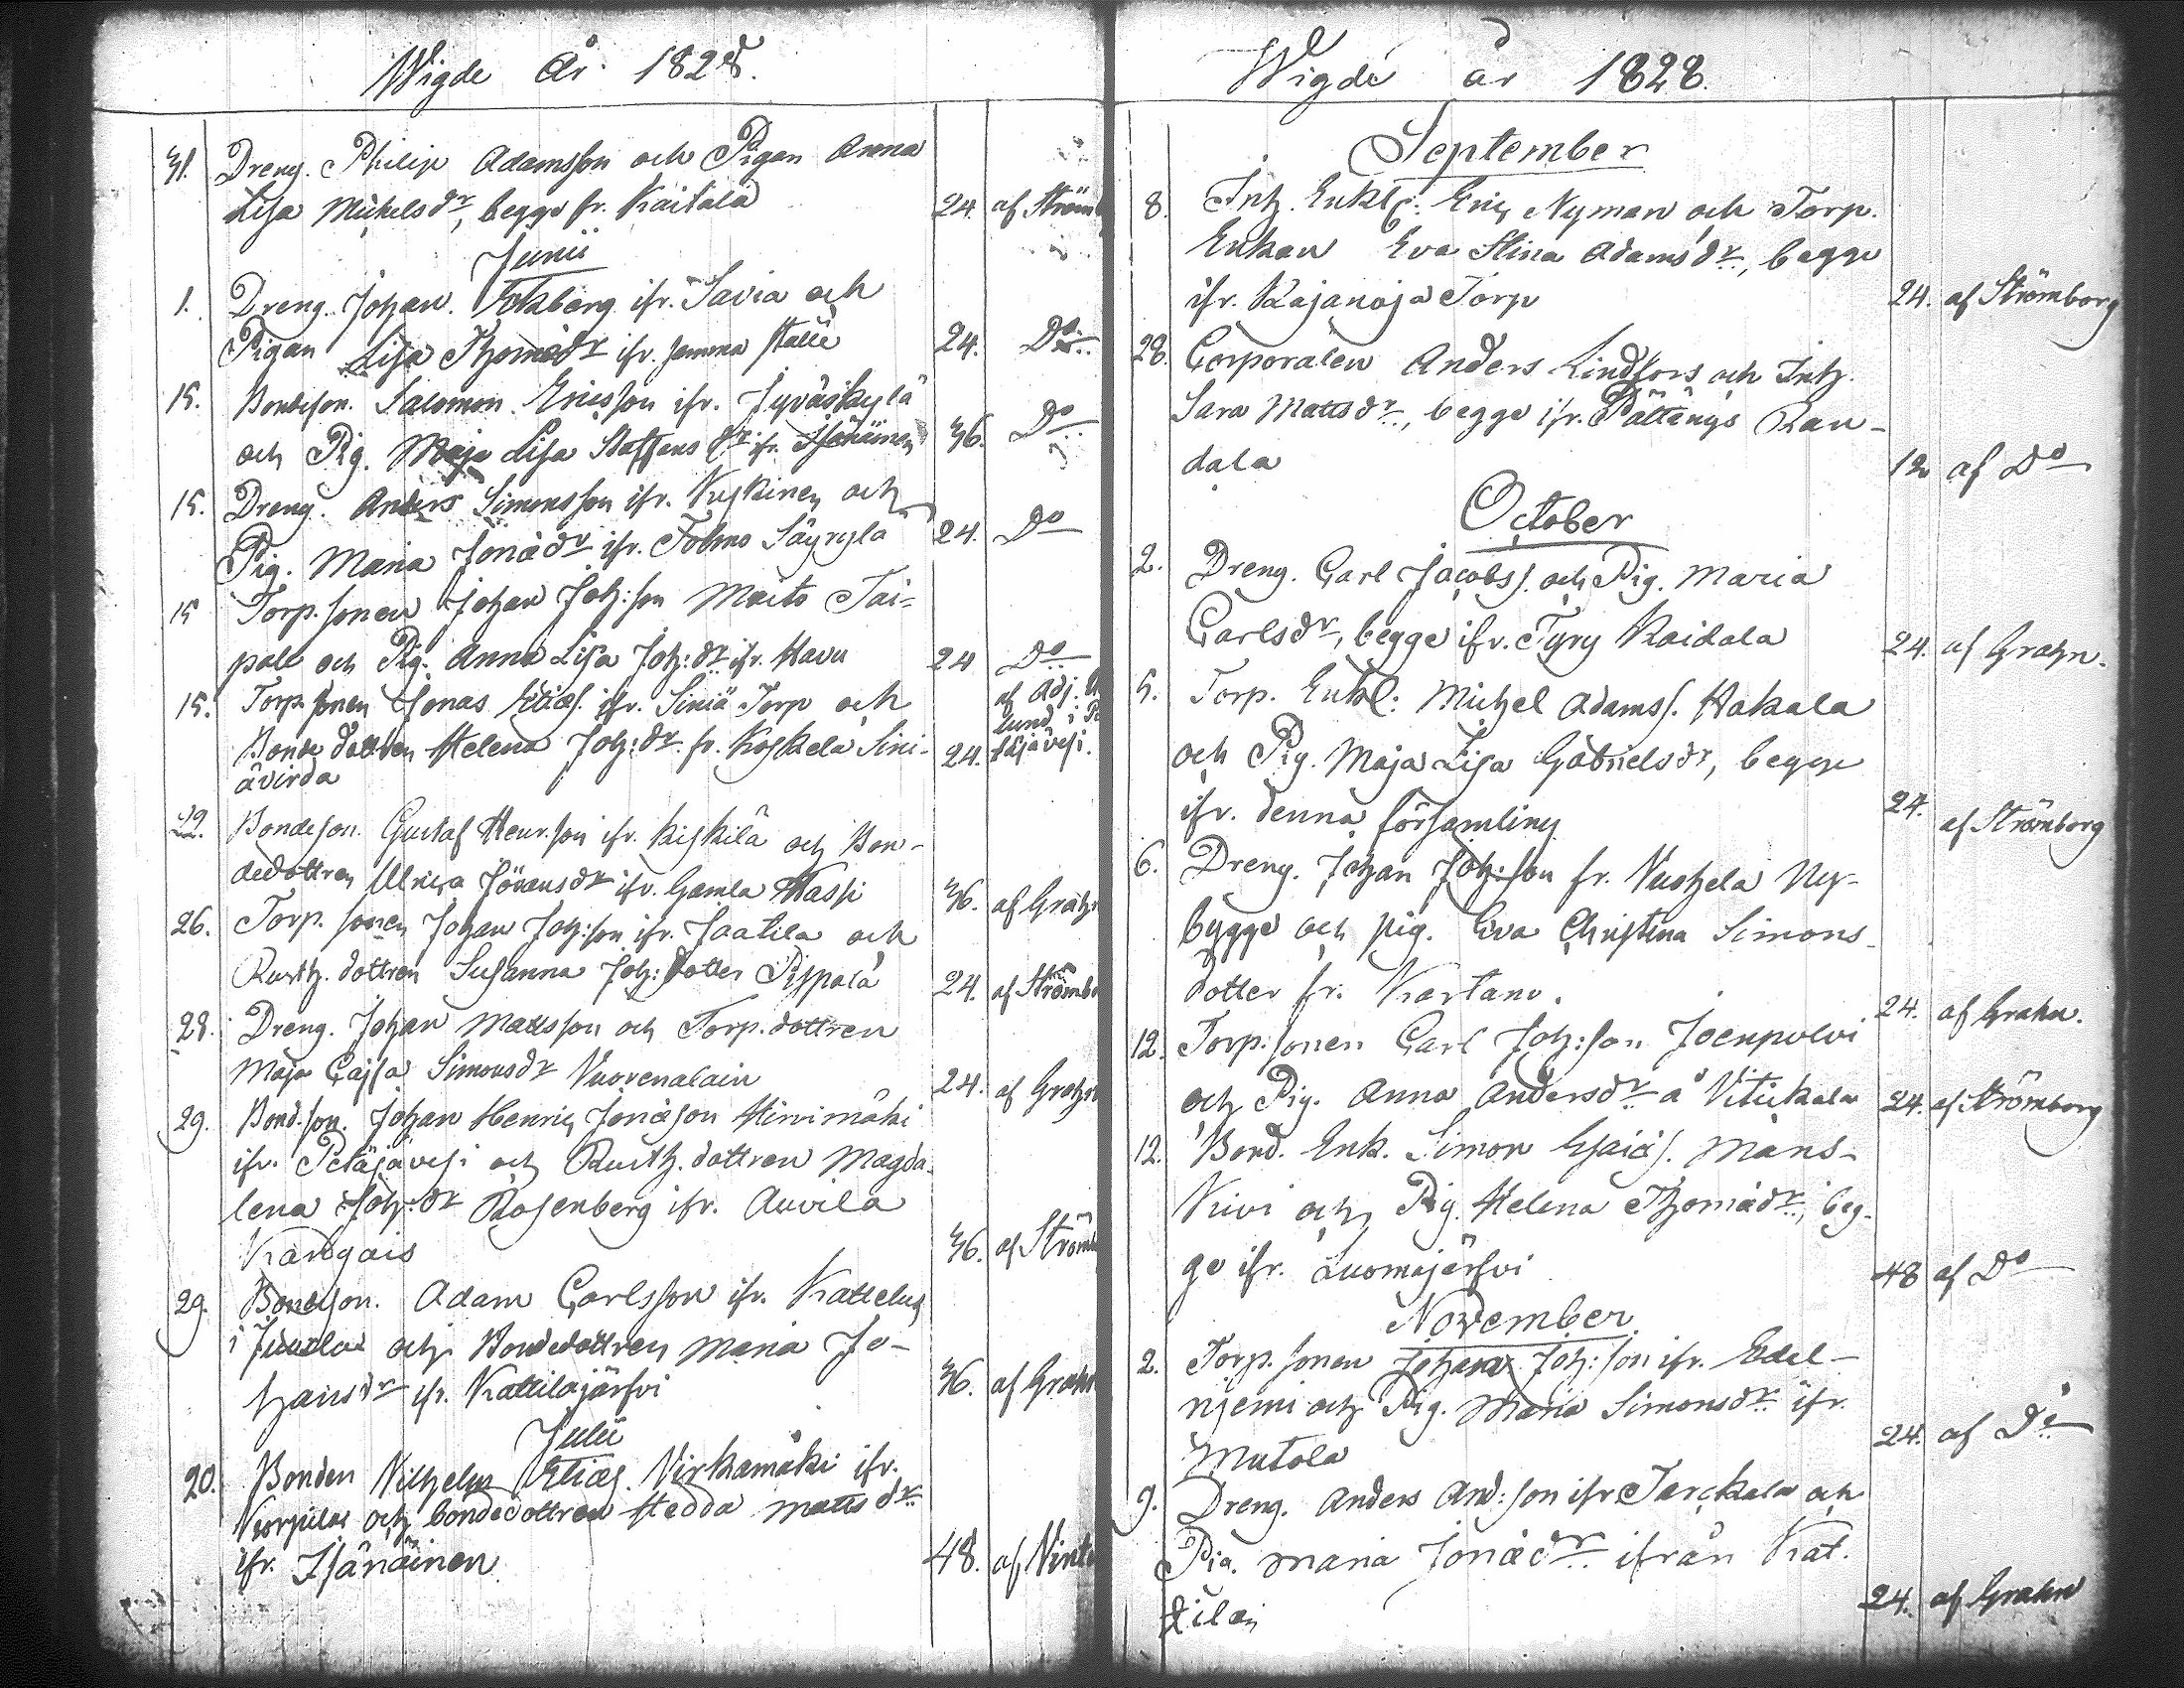 Wigde År 1828.
31. Dreng. Philip Adamsson och Pigan Anna
Lisa Mickelsdr, begge fr. Kaitala 24. af Ström
Junii
1. Dreng. Johan. Ekberg ifr. Savia och
Pigan Lisa Thomædr ifr. samma ställe 24. Do
15. Bondeson. Salomon Ericsson ifr. Jyväskylä
och Pig. Maja Lisa Staffansdr ifr. Isänäinen 36. Do
15. Dreng. Anders Simonsson ifr. Kuskinen och
Pig. Maria Jonædr ifr. Säyrylä 24. Do
15 Torp. sonen Johan Joh:son Tai-
pale och Pig. Anna Lisa Joh:dr ifr. Havu 24 Do
15. Torp. sonen Jonas Eliæs. ifr. Siniä Torp och
Bondedottren Helena Joh:dr. fr. Koskela Sini-
ävirda 24.
af Adj.
lund i
22. Bondeson. Gustaf Henr.son ifr. Kiskilä och Bon-
dedottren Ulrica Göransdr ifr. Gamla Hassi 36. af Grahn
26. Torp. sonen Johan Joh:son ifr. Jaatila och
Rusth. dottren Susanna Joh: dotter Pispala 24. af Strömb
28. Dreng. Johan Matsson och Torp. dottren
Maja Cajsa Simonsdr Vuorenalain 24. af Grahn
29. Bond.son. Johan Henric Jonæson Hirvimäki
ifr. Petäjävesi och Rusth. dottren Magda-
lena Joh:dr Rosenberg ifr. Auvila
Kangais 36. af Ström
29. Bondeson. Adam Carlsson ifr. Kattelus
i och Bondedottren Maria Jo-
hansdr ifr. Kattilajärfvi 36. af Grahn
Julii
20. Bonden Vilhelm Eliæs. Virkamäki ifr.
och bondedottren Hedda Mattsdr
ifr. Isänäinen 48. af
Wigde år 1828.
September
8. Inh. Enkl: Eric Nyman och Torp.
Enkan Eva Stina Adamsdr, begge
ifr. Kajanoja Torp 24. af Strömborg
28. Corporalen Anders Lindfors och Inh.
Sara Mattsdr, begge ifr. Rau-
dala 12 af Do
October
2. Dreng. Carl Jacobs. och Pig. Maria
Carlsdr, begge ifr. Tyry Kaidala 24. af Grahn.
5. Torp. Enkl: Michel Adams. Hakala
och Pig. Maja Lisa Gabrielsdr, begge
ifr. denna församling 24. af Strömborg
6. Dreng. Johan Joh:son fr. Ny-
bygge och pig. Eva Christina Simons-
dotter fr. Kartano. 24. af Grahn.
12. Torp. sonen Carl Joh:son Joenpolvi
och Pig. Anna Andersdr å Vitikala 24. af Strömborg
12. Bond. Enk. Simon Esaiæs. Mans-
Kivi och Pig. Helena Thomædr, beg-
ge ifr. Luomajärfvi 48 af Do
November
2. Torp. sonen Johan Joh:son ifr. Edel-
njemi och Pig. Maria Simonsdr ifr.
Mutola 24. af Do
9. Dreng. Anders And:son ifr. Jarckala och
Pig. Maria Jonædr ifrån Kat-
tilai 24. af Grahn